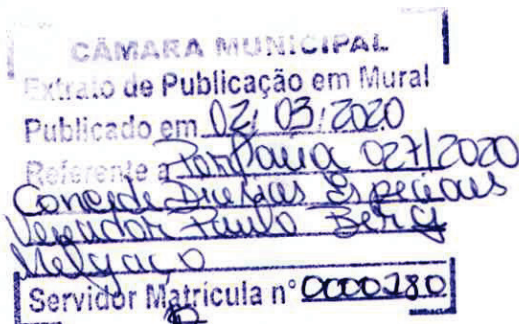 CÂMARA MUNICIPAL
Extrato de Publicação em Mural
Publicado em 02/03/2020
Referente a Portaria 027/2020
Concede Diárias Especiais
Vereador Paulo Berg
Melgaço
Servidor Matrícula nº 0000180